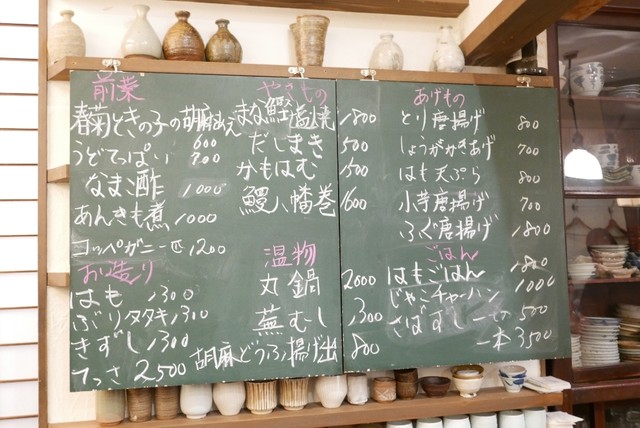 前菜
春菊ときの子の胡麻あえ
600
うどてっぱい 700
なまこ酢 1000
あんきも煮 1000
コッペガニ一匹 1200
お造り
はも 1300
ぶりタタキ 1300
きずし 1300
てっさ 2500
やきもの
まな鰹塩焼 1800
だしまき 500
かもはむ 1500
鰻八幡巻 1600
温物
丸鍋 2000
蕪むし 1300
胡麻どうふ揚げ出 800
あげもの
とり唐揚げ 800
しょうがかきあげ 700
はも天ぷら 800
小芋唐揚げ 700
ふぐ唐揚げ 1800
ごはん
はもごはん 1800
じゃこチャーハン 1000
さばずし一つ 500
一本 3500